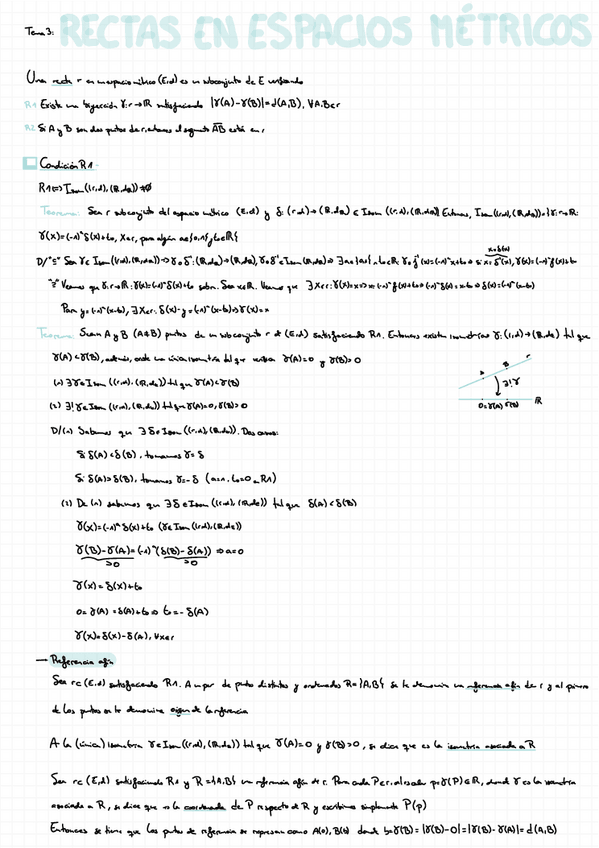 Tema 3: RECTAS EN ESPACIOS MÉTRICOS
Una recta r en un espacio métrico (E,d) es un subconjunto de E verificando
R1 Existe una biyección γ: r→ℝ satisfaciendo |γ(A)-γ(B)| = d(A,B), ∀A,B∈r
R2 Si A y B son dos puntos de r, entonces el segmento AB está en r
Condición R1
R1 ⇔ Isom((r,d),(ℝ,du)) ≠ ∅
Teorema: Sea r subconjunto del espacio métrico (E,d) y δ: (r,d)→(ℝ,du) ∈ Isom((r,d),(ℝ,du)). Entonces, Isom((r,d),(ℝ,du)) = {γ: r→ℝ:
γ(x)=(-1)ᵃδ(x)+t₀, x∈r, para algún a∈{0,1} y t₀∈ℝ}
Para y=(-1)ᵃ(x-t₀), ∃x∈r:
Teorema: Sean A y B (A≠B) puntos de un subconjunto r de (E,d) satisfaciendo R1. Entonces existen isometrías γ: (r,d)→(ℝ,du) tal que
γ(A)<γ(B), además, existe una única isometría tal que verifica γ(A)=0 y γ(B)>0
(1) ∃γ∈Isom((r,d),(ℝ,du)) tal que γ(A)<γ(B)
(2) ∃!γ∈Isom((r,d),(ℝ,du)) tal que γ(A)=0, γ(B)>0
A B r
∃!γ
0=γ(A) γ(B) ℝ
D/(1) Sabemos que ∃δ∈Isom((r,d),(ℝ,du)). Dos casos:
Si δ(A)<δ(B), tomamos γ=δ
Si δ(A)>δ(B), tomamos γ=-δ (a=1, t₀=0 en R1)
(2) De (1) sabemos que ∃δ∈Isom((r,d),(ℝ,du)) tal que δ(A)<δ(B)
γ(x)=(-1)ᵃδ(x)+t₀ (γ∈Isom((r,d),(ℝ,du))
γ(B)-γ(A)=(-1)ᵃ(δ(B)-δ(A)) ⇒ a=0
>0 >0
γ(x)=δ(x)+t₀
0=γ(A)=δ(A)+t₀ ⇒ t₀=-δ(A)
γ(x)=δ(x)-δ(A), ∀x∈r
→ Referencia afín
Sea r⊂(E,d) satisfaciendo R1. A un par de puntos distintos y ordenados R={A,B} se le denomina una referencia afín de r y al primero
de los puntos se le denomina origen de la referencia
A la (única) isometría γ∈Isom((r,d),(ℝ,du)) tal que γ(A)=0 y γ(B)>0, se dice que es la isometría asociada a R
Sea r⊂(E,d) satisfaciendo R1 y R={A,B} una referencia afín de r. Para cada P∈r, al valor p=γ(P)∈ℝ, donde γ es la isometría
asociada a R, se dice que es la coordenada de P respecto de R y escribimos simplemente P(p)
Entonces se tiene que los puntos de referencia se expresan como A(0), B(b) donde b=γ(B)=|γ(B)-0|=|γ(B)-γ(A)|=d(A,B)